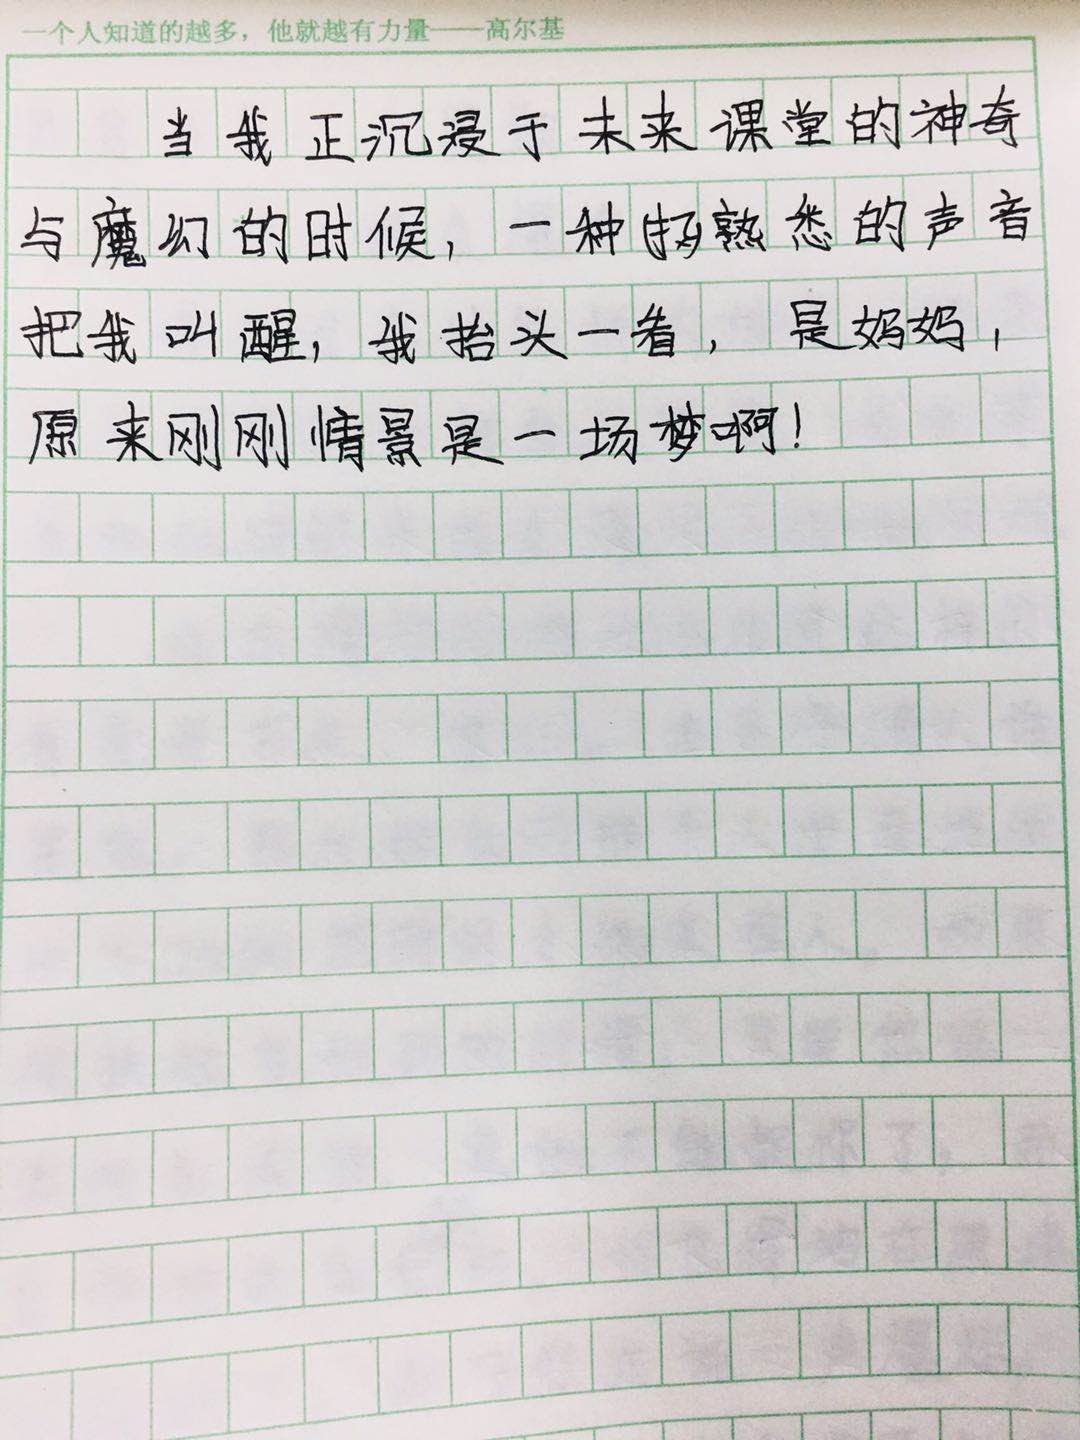 一个人知道的越多，他就越有力量——高尔基
当我正沉浸于未来课堂的神奇
与魔幻的时候，一种熟悉的声音
把我叫醒，我抬头一看，是妈妈，
原来刚刚情景是一场梦啊！